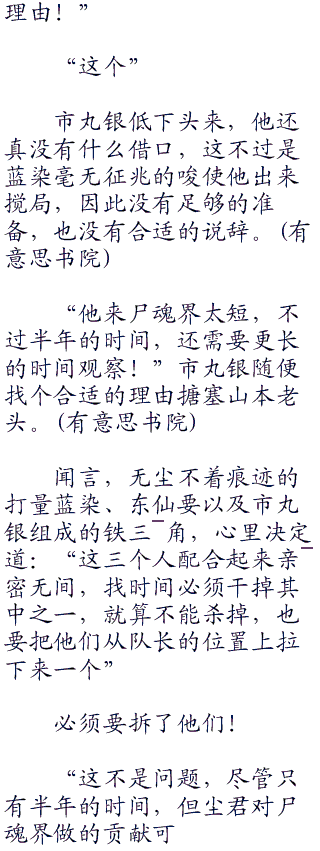 理由！”
“这个”
市丸银低下头来，他还
真没有什么借口，这不过是
蓝染毫无征兆的唆使他出来
搅局，因此没有足够的准
备，也没有合适的说辞。(有
意思书院)
“他来尸魂界太短，不
过半年的时间，还需要更长
的时间观察！”市丸银随便
找个合适的理由搪塞山本老
头。(有意思书院)
闻言，无尘不着痕迹的
打量蓝染、东仙要以及市丸
银组成的铁三¯角，心里决定
道：“这三个人配合起来亲¯
密无间，找时间必须干掉其
中之一，就算不能杀掉，也
要把他们从队长的位置上拉
下来一个”
必须要拆了他们！
“这不是问题，尽管只
有半年的时间，但尘君对尸
魂界做的贡献可